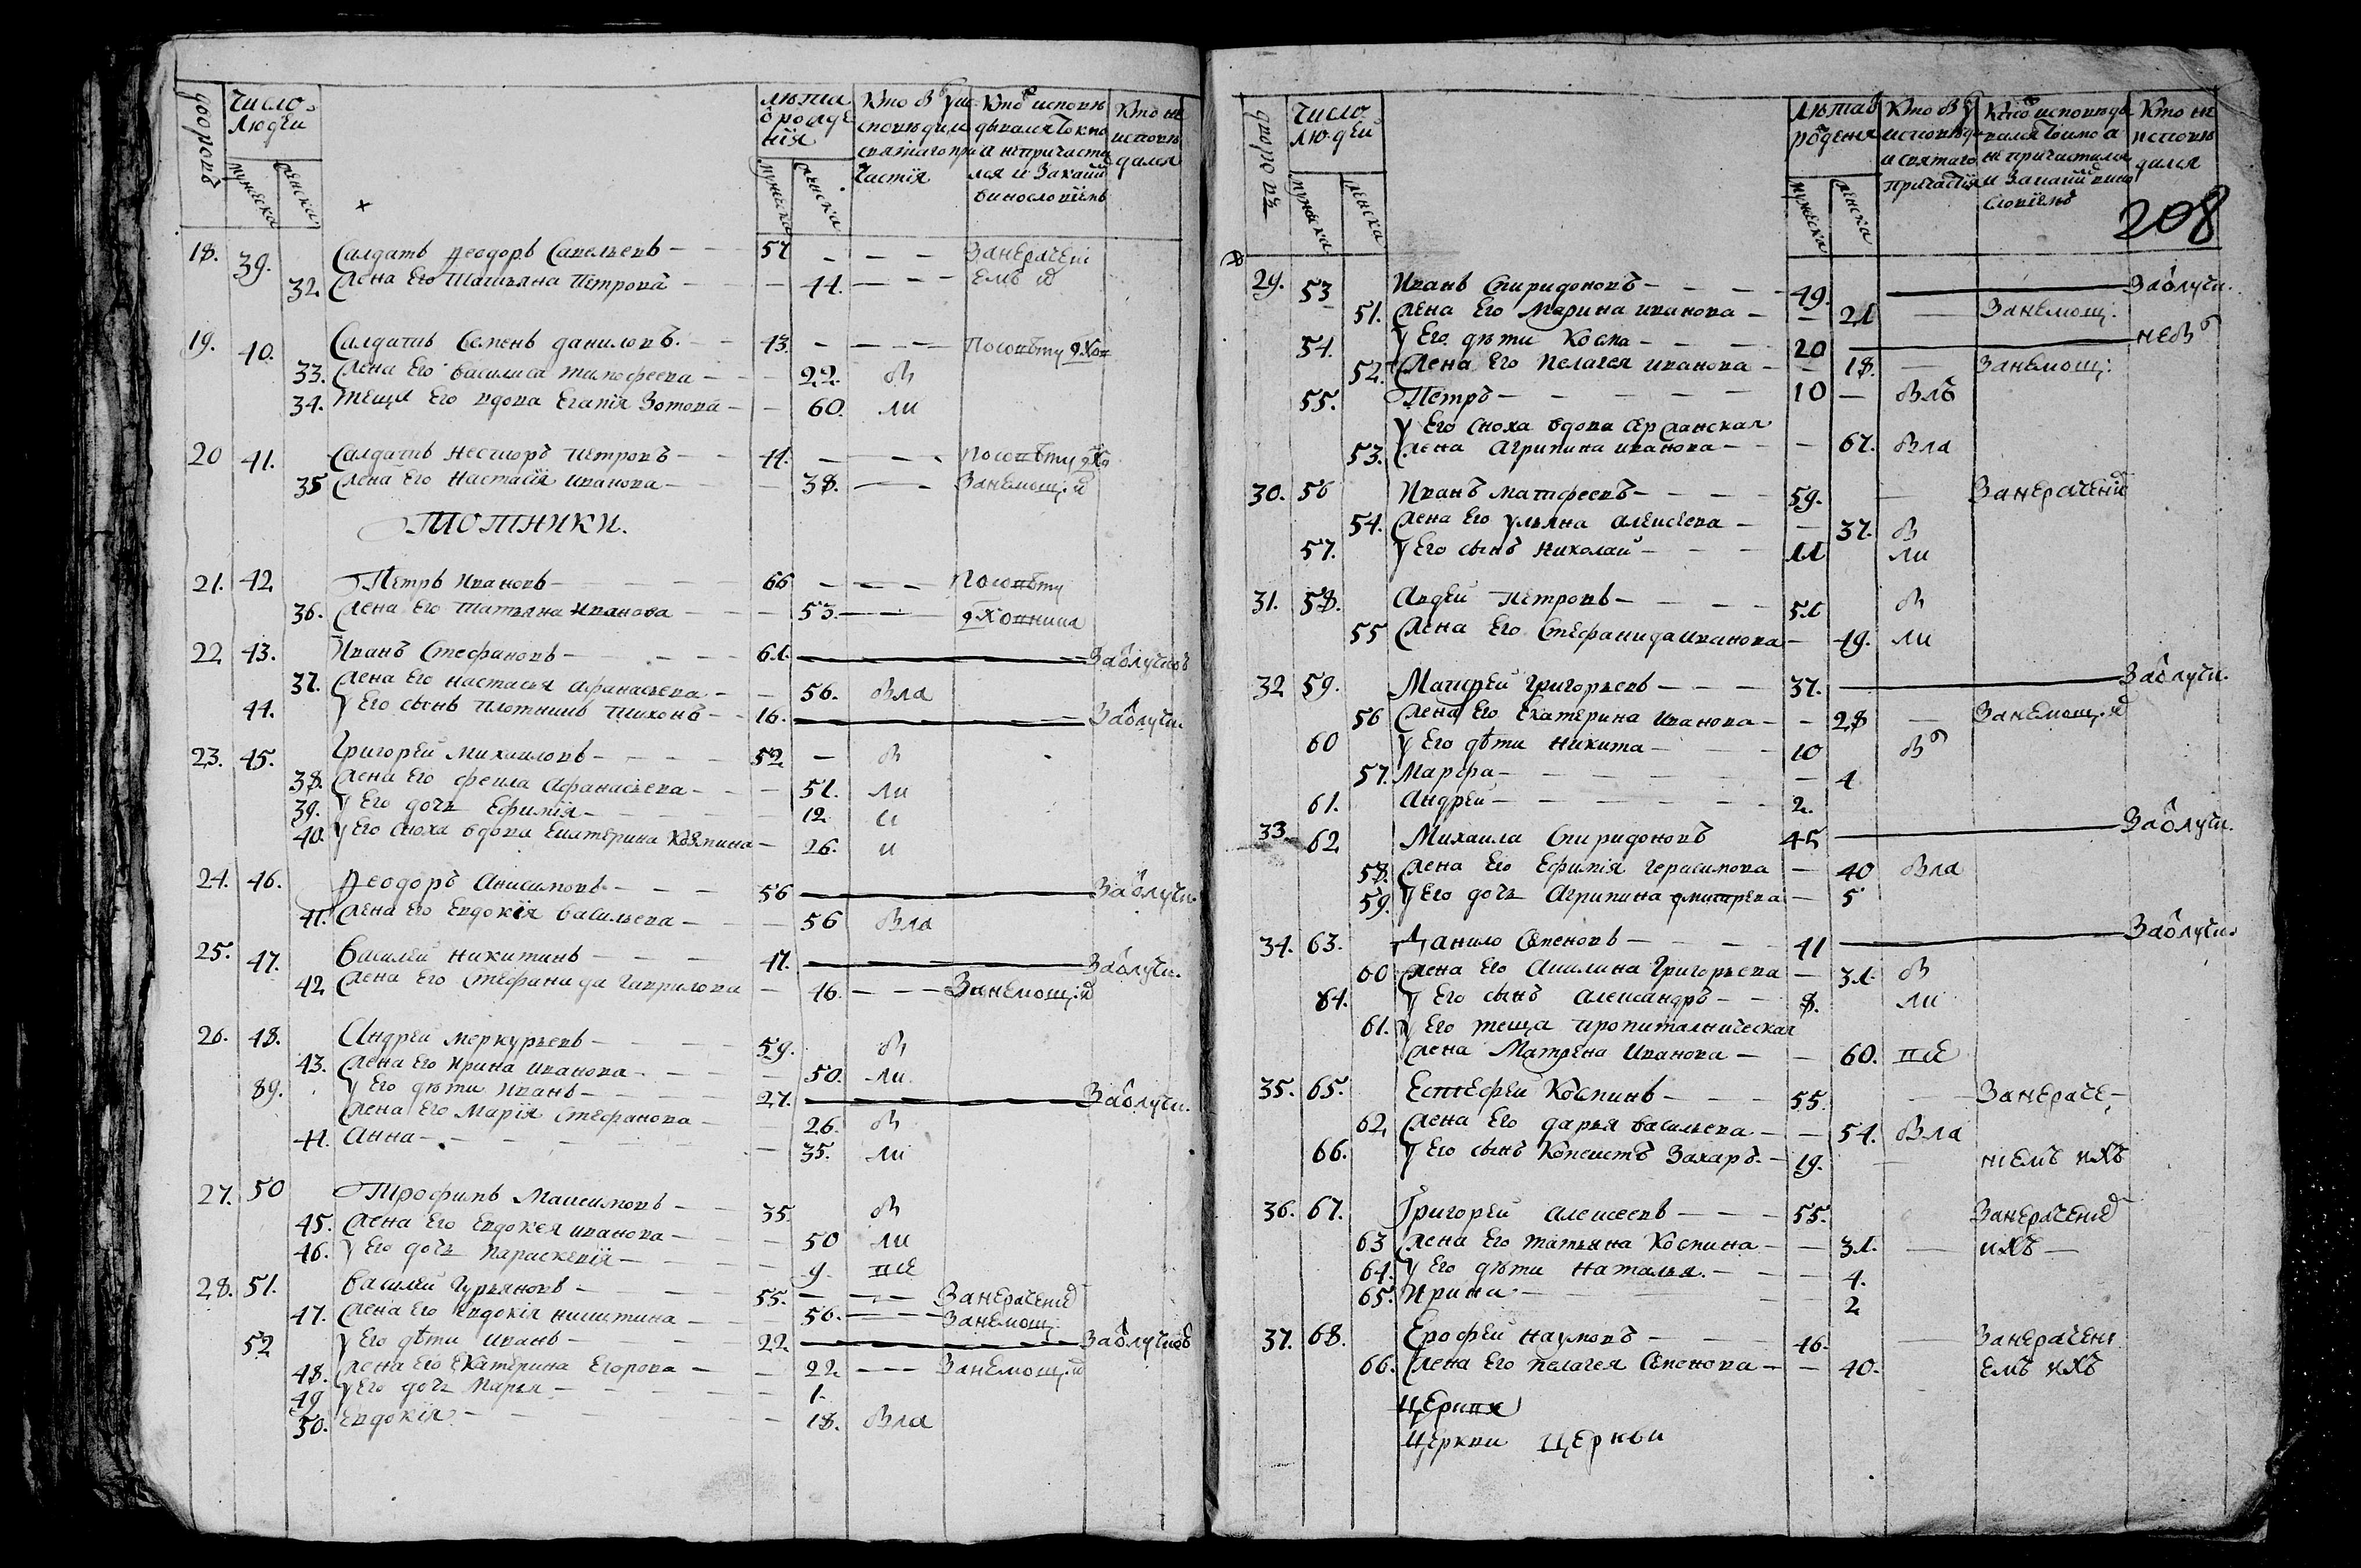 дворовъ
Число людей
мужеска
женска
лѣта ѿ рожденія
мужеска
женска
Кто былъ у исповѣди и святаго причастія
Кто исповѣдывался токмо а не причастился и за какимъ винословіемъ
Кто не исповѣдался
18. 39. Салдатъ Ѳеодоръ Савельевъ 57 Занерачені
32. Жена Его Татьяна Петрова 44. Емъ
19. 40. Салдатъ Семенъ даниловъ 43. Посовѣту духов
33. Жена Его василиса тимофеева 22. бы
34. теща Его вдова Евгапія Зотова 60. ли
20 41. Салдатъ несторъ Петровъ 44. Посовѣту
35 Жена Его Настасія иванова 38. Занемощ.
Плотники.
21. 42. Петръ Ивановъ 66 Посовѣту
36. Жена Его Татьяна Иванова 53. духовника
22 43. Иванъ Стефановъ 61. Заѡлучкою
37. Жена Его настасья афанасьева 56. была
44. У Его сынъ плотникъ тихонъ 16. Заѡлучк.
23. 45. Григорей михаиловъ 52 бы
38. Жена Его фекла Афанасьева 51. ли
39. У Его дочь Ефимія 12
40. У Его сноха вдова Екатерина Козмина 26. и
24. 46. Ѳеодоръ Анисимовъ 56 Заѡлучк.
41. Жена Его Евдокія васильева 56 была
25. 47. Василей никитинъ 47. Заѡлучк.
42 Жена Его Стефанида Гаврилова 46. Занемощ.
26. 48. Андрей меркурьевъ 59. бы
43. Жена Его Ирина иванова 50. ли
89. У Его дѣти иванъ 27. Заѡлучк.
Жена Его Марія Стефанова 26. бы
44. Анна 35. ли
27. 50 Трофимъ Максимовъ 35. бы
45. Жена Его Евдокея иванова 50 ли
46. У Его дочь параскевія 9.
28. 51. Василей Гурьяновъ 55. Занерачение
47. Жена Его евдокія никитина 56. Занемощ.
52 У Его дѣти иванъ 22 Заѡлучкою
48. Жена Его Екатерина Егорова 22 Занемощ.
49 У Его дочь Марья 1.
50. Евдокія 18. была
208
дворовъ
Число людей
мужеска
женска
лѣта ѿ рожденія
мужеска
женска
Кто былъ у исповѣди и святаго причастія
Кто исповѣдывался токмо а не причастился и за какимъ винословіемъ
Кто не исповѣдался
29. 53 Иванъ Спиридоновъ 49. Заѡлучк.
51. Жена Его Марина иванова 21 Занемощ:
54. У Его дѣти Косма 20 небы
52. Жена Его Пелагея иванова 18. Занемощ:
55. Петръ 10 былъ
У Его сноха вдова
53. Жена Агрипина иванова 67. была
30. 56 Иванъ матфеевъ 59. Занерачение
54. Жена Его ульяна алексеева 37. бы
57. У Его сынъ николай 11 ли
31. 58. Авдей Петровъ 51 бы
55 Жена Его Стефанида иванова 49. ли
32 59. Матфей григорьевъ 37. Заѡлучк.
56 Жена Его Екатерина иванова 28 Занемощ.
60 У Его дѣти никита 10 бы
57. Марфа 4
61. андрей 2.
33 62 Михаила Спиридоновъ 45 Заѡлучк.
58. Жена Его Ефимія герасимова 40 была
59. У Его дочь Агрипина дмитрева 5
34. 63. Данило Семеновъ 41 Заѡлучк.
60 Жена Его Акилина Григорьева 31. бы
64. У Его сынъ александръ 8. ли
61. У Его теща пропитальническая
Жена Матрена Иванова 60.
35. 65. Естефей Косминъ 55. Занераче-
62. Жена Его дарья васильева 54. была
66. У Его сынъ Копеистъ Захаръ 19. ніемъ ихъ
36. 67. Григорей алексеевъ 55. Занерачение
63 Жена Его татьяна Космина 31. ихъ
64. У Его дѣти наталья 4.
65. Ирина 2
37. 68. Ерофей наумовъ 46. Занерачені
66. Жена Его Пелагея Семенова 40. Емъ ихъ
Церкви Церкви